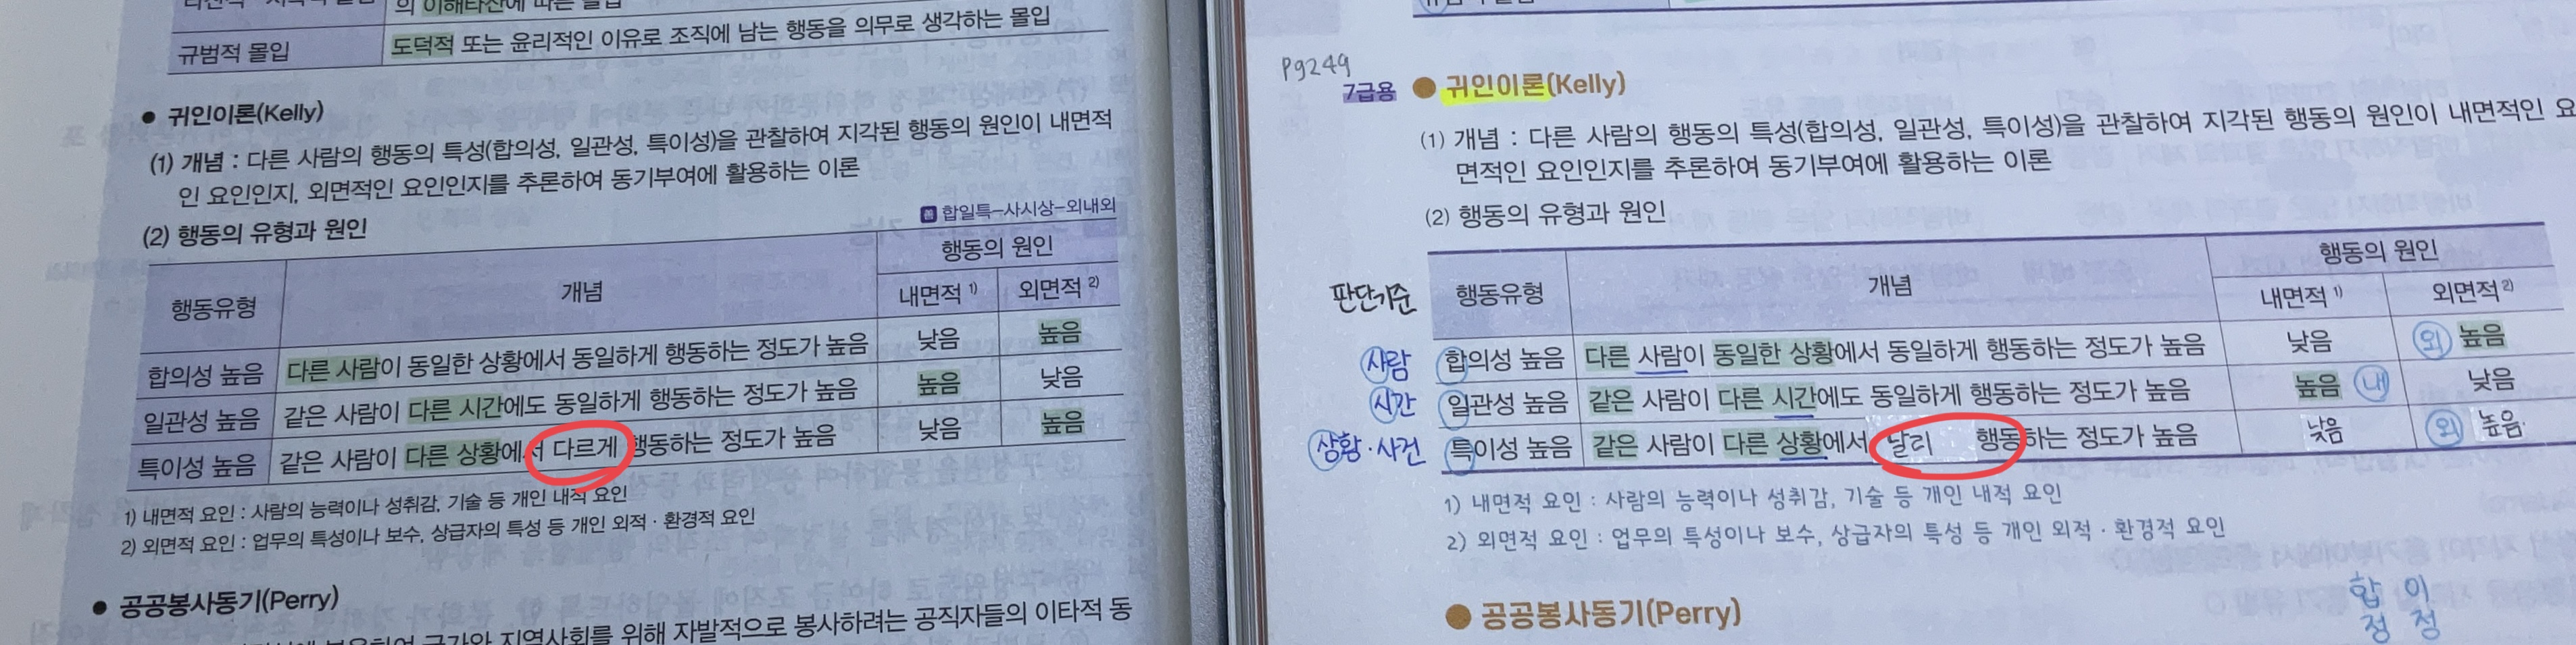 의 이해타산에 따른 몰입
규범적 몰입 도덕적 또는 윤리적인 이유로 조직에 남는 행동을 의무로 생각하는 몰입
● 귀인이론(Kelly)
(1) 개념 : 다른 사람의 행동의 특성(합의성, 일관성, 특이성)을 관찰하여 지각된 행동의 원인이 내면적
인 요인인지, 외면적인 요인인지를 추론하여 동기부여에 활용하는 이론
(2) 행동의 유형과 원인
합일특-사시상-외내외
행동유형 개념 행동의 원인
내면적 1) 외면적 2)
합의성 높음 다른 사람이 동일한 상황에서 동일하게 행동하는 정도가 높음 낮음 높음
일관성 높음 같은 사람이 다른 시간에도 동일하게 행동하는 정도가 높음 높음 낮음
특이성 높음 같은 사람이 다른 상황에서 다르게 행동하는 정도가 높음 낮음 높음
1) 내면적 요인 : 사람의 능력이나 성취감, 기술 등 개인 내적 요인
2) 외면적 요인 : 업무의 특성이나 보수, 상급자의 특성 등 개인 외적 · 환경적 요인
● 공공봉사동기(Perry)
국가와 지역사회를 위해 자발적으로 봉사하려는 공직자들의 이타적 동
P9249
7급용 ● 귀인이론(Kelly)
(1) 개념 : 다른 사람의 행동의 특성(합의성, 일관성, 특이성)을 관찰하여 지각된 행동의 원인이 내면적인 요
면적인 요인인지를 추론하여 동기부여에 활용하는 이론
(2) 행동의 유형과 원인
판단기준 행동유형 개념 행동의 원인
내면적 1) 외면적 2)
사람 합의성 높음 다른 사람이 동일한 상황에서 동일하게 행동하는 정도가 높음 낮음 외 높음
시간 일관성 높음 같은 사람이 다른 시간에도 동일하게 행동하는 정도가 높음 높음 내 낮음
상황·사건 특이성 높음 같은 사람이 다른 상황에서 달리 행동하는 정도가 높음 낮음 외 높음
1) 내면적 요인 : 사람의 능력이나 성취감, 기술 등 개인 내적 요인
2) 외면적 요인 : 업무의 특성이나 보수, 상급자의 특성 등 개인 외적 · 환경적 요인
● 공공봉사동기(Perry)
합 이
정 정